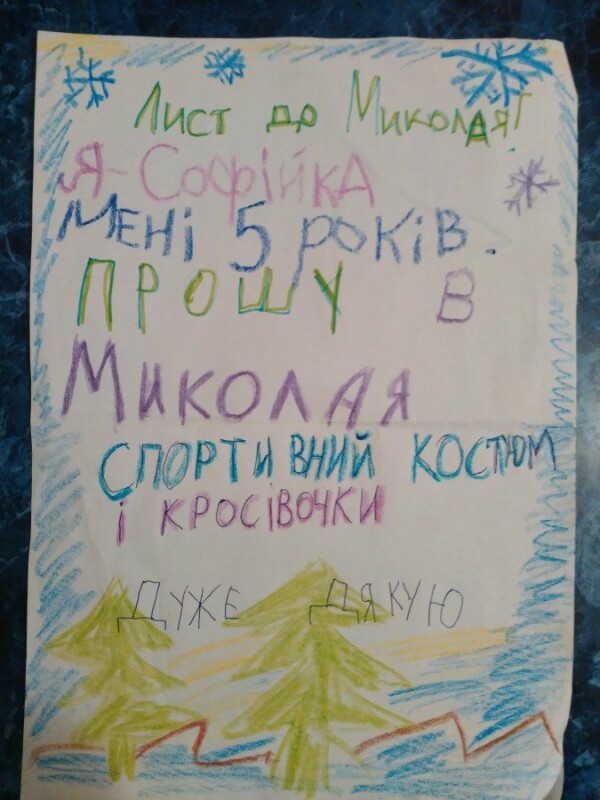 Лист до Миколая!
Я-Софійка
Мені 5 років.
Прошу в
Миколая
спортивний костюм
і кросівочки
Дуже дякую